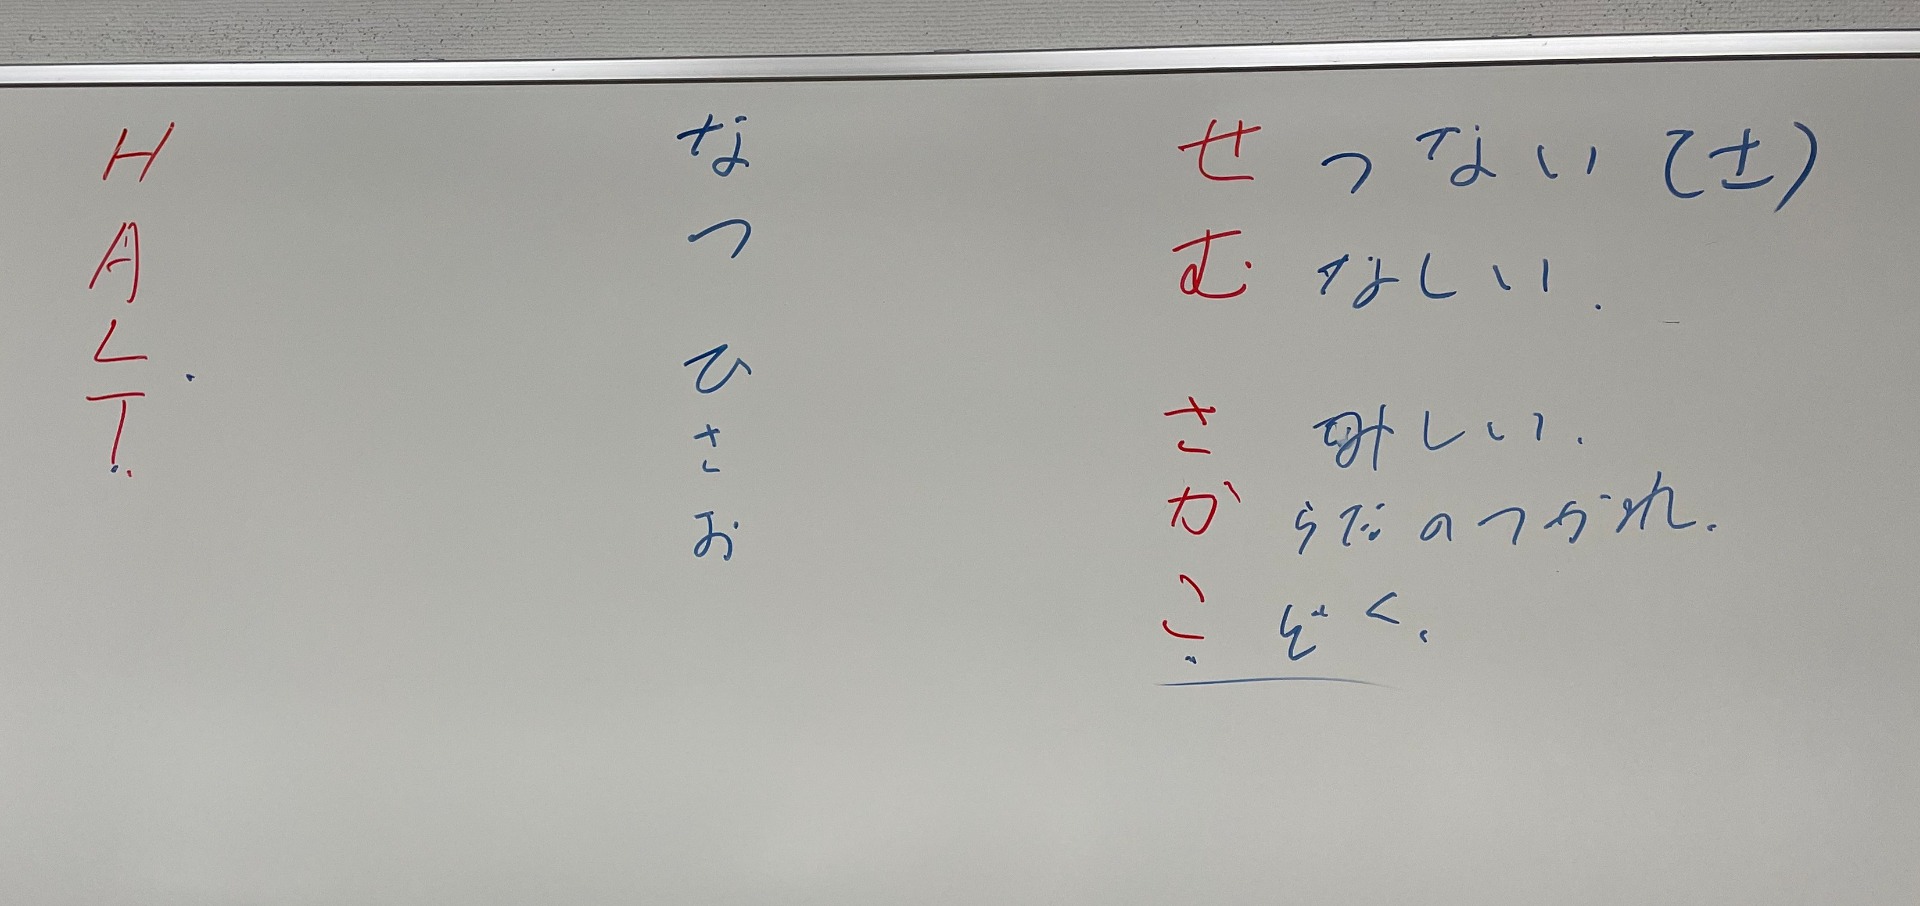 H
A
L
T.
な
つ
ひ
さ
お
せつない(土)
むなしい.
さみしい.
からだのつかれ.
こどく.